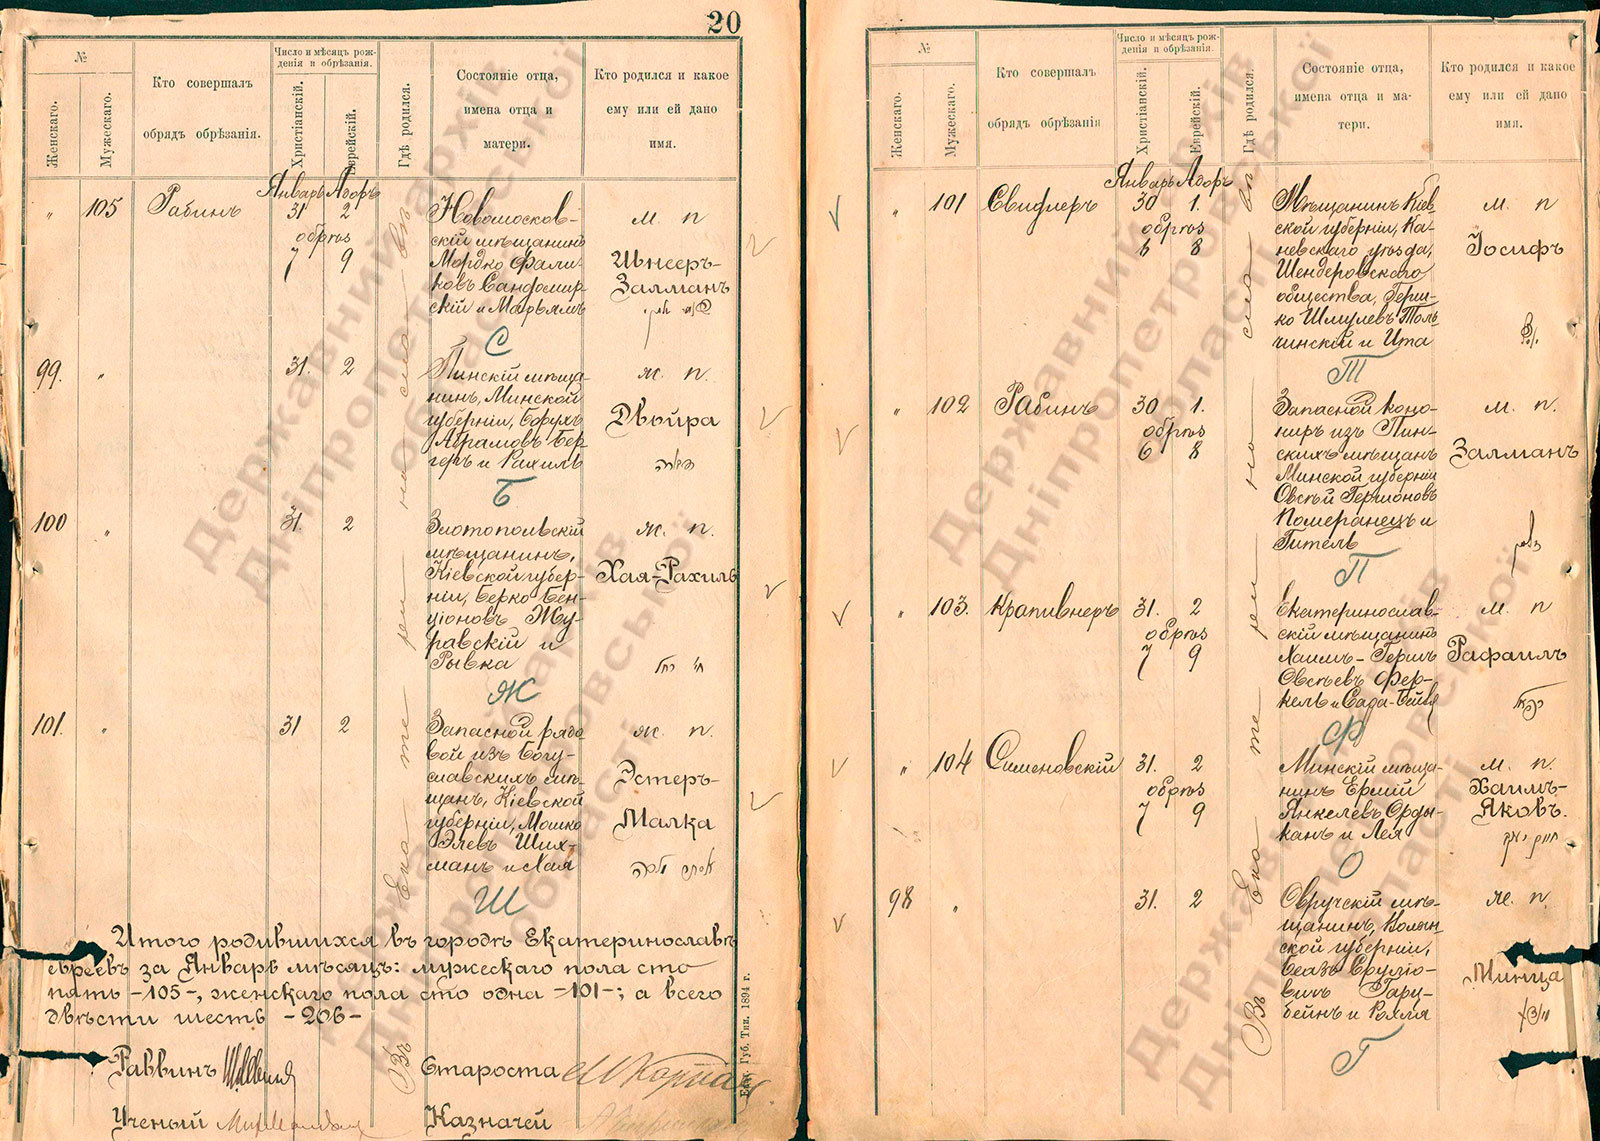 20
№
Женскаго.
Мужескаго.
Кто совершалъ
обрядъ обрѣзанія.
Число и мѣсяцъ рож-
денія и обрѣзанія.
Христіанскій.
Еврейскій.
Гдѣ родился.
Состояніе отца,
имена отца и
матери.
Кто родился и какое
ему или ей дано
имя.
Январь Адоръ
" 105 Рабинъ 31 2
обрѣз
7 9
Новомосков-
скій мѣщанинъ
Мордко Фали-
ковъ Сандомир-
скій и Марьямъ
м. п
Залманъ
С
99. " 31. 2
Пинскій мѣща-
нинъ, Минской
губерніи, Борухъ
Абрамовъ Бер-
геръ и Рахиль
ж. п.
Двойра
Б
100 " 31. 2
Златопольскій
мѣщанинъ,
Кіевской губер-
ніи, Берко Бен-
ціоновъ Жу-
равскій и
Рывка
ж. п.
Хая-Рахиль
חי' רחל
Ж
101. " 31 2
Запасной рядо
вой изъ Богу-
славскихъ мѣ-
щанъ, Кіевской
губерніи, Мошко
Элевъ Ших-
манъ и Хая
ж. п.
Эстеръ-
Малка
אסתר מלכה
Ш
Въ Ека те рин но сла вѣ
Итого родившихся въ городѣ Екатеринославѣ
евреевъ за Январь мѣсяцъ: мужескаго пола сто
пять -105-, женскаго пола сто одна -101-; а всего
двѣсти шесть -206-
Раввинъ
Староста
Ученый
Казначей
Ек. Губ. Тип. 1894 г.
№
Женскаго.
Мужескаго.
Кто совершалъ
обрядъ обрѣзанія
Число и мѣсяцъ рож-
денія и обрѣзанія.
Христіанскій.
Еврейскій.
Гдѣ родился.
Состояніе отца,
имена отца и ма-
тери.
Кто родился и какое
ему или ей дано
имя.
Январь Адоръ
" 101 Свифлеръ 30 1.
обрѣз
6 8
Мѣщанинъ Кіев-
ской губерніи, Ка-
невскаго уѣзда,
Шендеровскаго
общества, Герш-
ко Шмулевъ Толь-
чинскій и Ита
м. п
Іосифъ
Т
" 102 Рабинъ 30 1.
обрѣз
6 8
Запасной коно-
ниръ изъ Пин-
скихъ мѣщанъ
Минской губерніи
Овсѣй Гершоновъ
Померанецъ и
Гитель
м. п.
Залманъ
זלמן
П
" 103. Крапивнеръ 31. 2
обрѣз
7 9
Екатеринослав-
скій мѣщанинъ
Хаимъ-Гершъ
Овсѣевъ Фер-
кель и Сара-Бейля
м. п
Рафаилъ
Ф
" 104 Сименовскій 31. 2
обрѣз
7 9
Минскій мѣща-
нинъ Ермій
Янкелевъ Орды-
канъ и Лея
м. п.
Хаимъ-
Яковъ.
חיים יעקב
О
98 " 31. 2
Овручскій мѣ-
щанинъ, Волын-
ской губерніи,
Сруліо-
вичъ Гару-
бейнъ и Рохля
ж. п.
Минца
Г
Въ Ека те рин но сла вѣ
Державний архів
Дніпропетровської
області